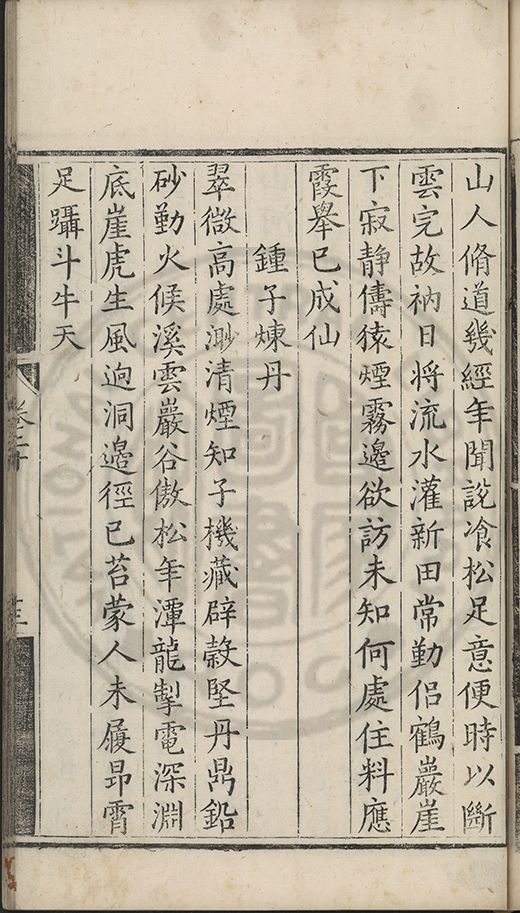 山人脩道幾經年聞說飡松足意便時以斷
雲完故衲日将流水灌新田常勤侣鶴巖崖
下寂静儔猿煙霧邊欲訪未知何處住料應
霞舉已成仙
鍾子煉丹
翠微高處渺清煙知子機藏辟穀堅丹鼎鉛
砂勤火候溪雲巖谷傲松年潭龍掣電深淵
底崖虎生風逈洞邊徑已苔蒙人未履昻霄
足躡斗牛天
卷二十